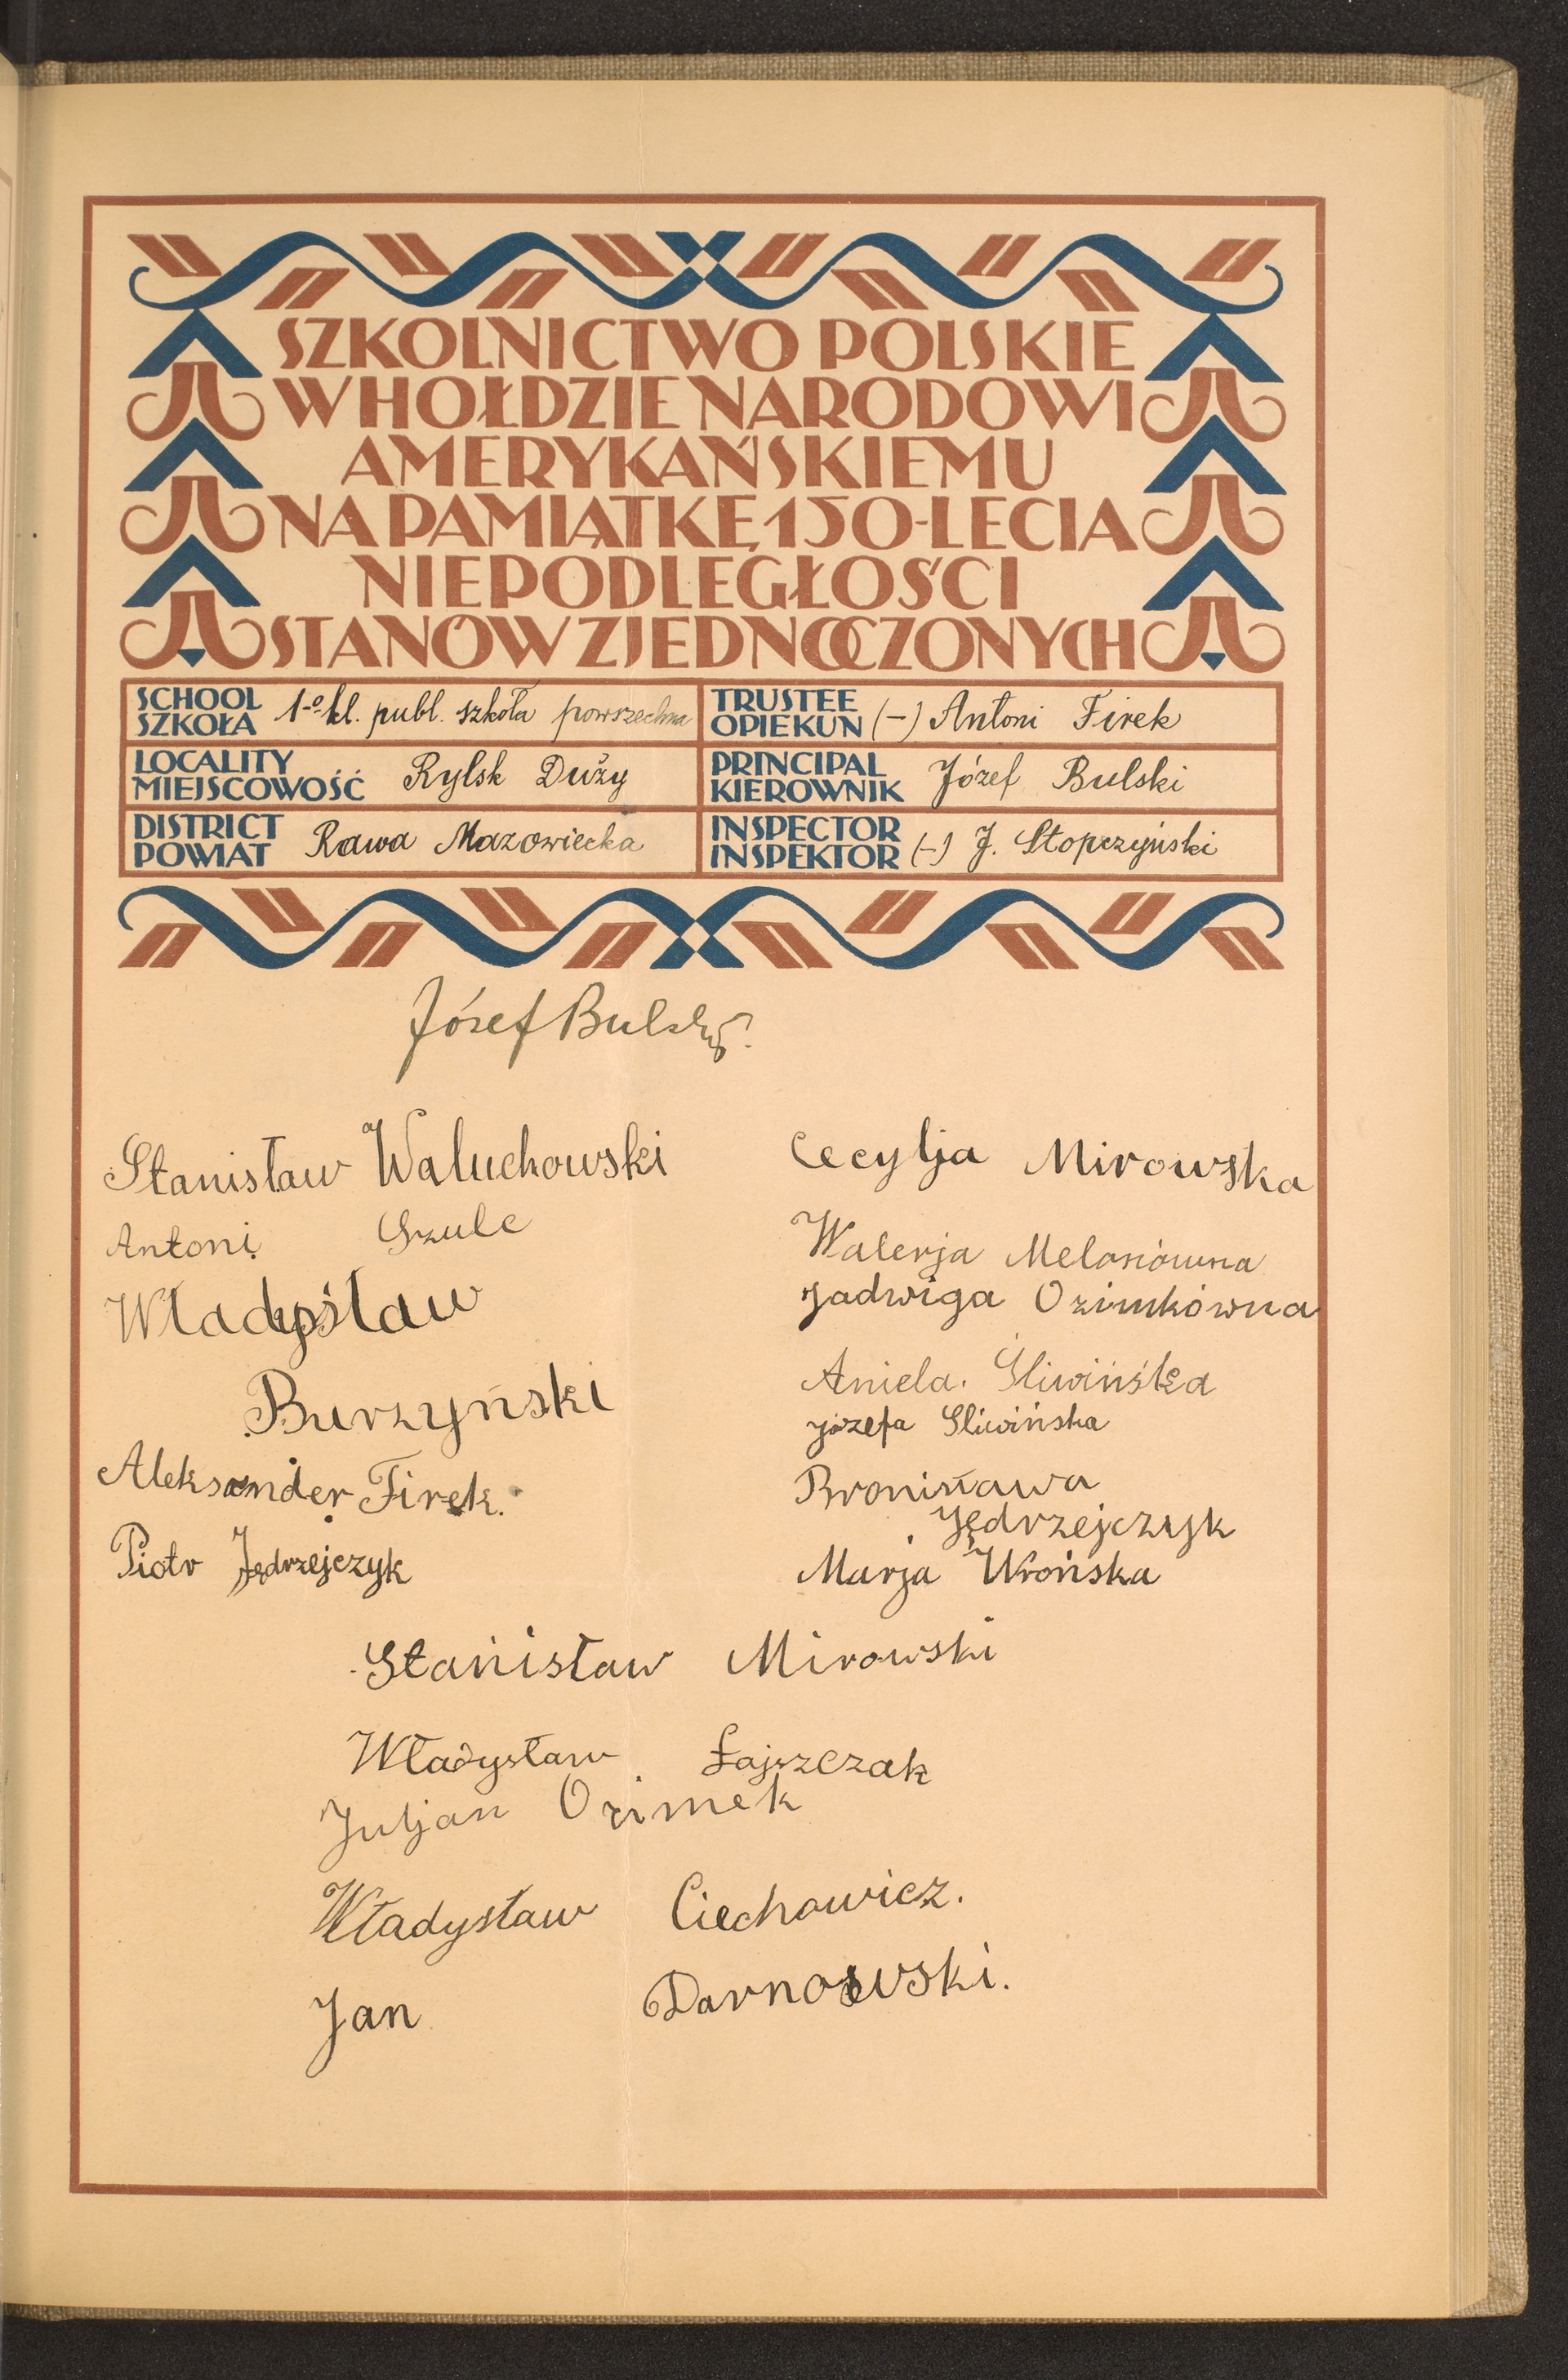 SZKOLNICTWO POLSKIE
W HOŁDZIE NARODOWI
AMERYKAŃSKIEMU
NA PAMIĄTKĘ 150-LECIA
NIEPODLEGŁOŚCI
STANÓW ZJEDNOCZONYCH
SCHOOL
SZKOŁA
1-o kl. publ. szkoła powszechna
TRUSTEE
OPIEKUN
(-) Antoni Firek
LOCALITY
MIEJSCOWOŚĆ
Rylsk Duży
PRINCIPAL
KIEROWNIK
Józef Bulski
DISTRICT
POWIAT
Rawa Mazowiecka
INSPECTOR
INSPEKTOR
(-) J. Stopczyński
Józef Bulski
Stanisław Waluchowski
Antoni Szulc
Władysław
Burzyński
Aleksander Firek.
Piotr Jędrzejczyk
Cecylja Mirowska
Walerja Melonówna
Jadwiga Ozimkówna
Aniela. Śliwińska
Józefa Sliwińska
Bronisława
Jędrzejczyk
Marja Wrońska
Stanisław Mirowski
Władysław Łajszczak
Juljan Ozimek
Władysław Ciechowicz.
Jan Darnowski.